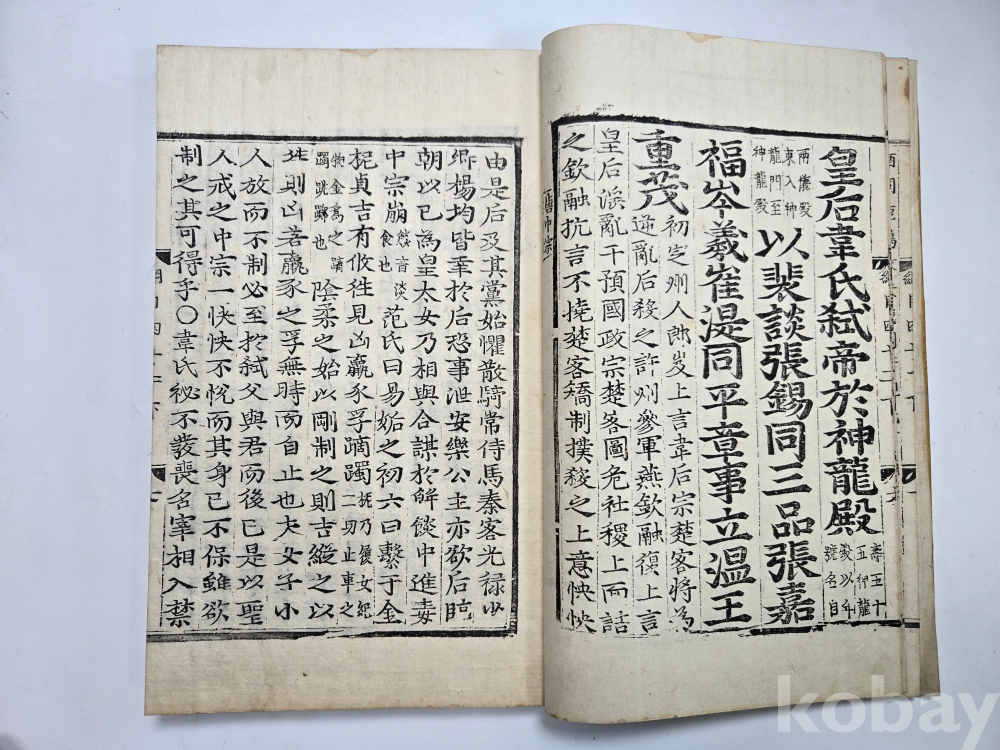 皇后韋氏弑帝於神龍殿壽五十
五神龍
殿以年
號名自
兩儀殿
東入神
龍門至
神龍殿以裴談張錫同三品張嘉
福岑羲崔湜同平章事立溫王
重茂初定州人郎岌上言韋后宗楚客將爲
逆亂后殺之許州參軍燕欽融復上言
皇后淫亂干預國政宗楚客圖危社稷上而詰
之欽融抗言不撓楚客矯制撲殺之上意怏怏
由是后及其黨始懼散騎常侍馬秦客光祿少
卿楊均皆幸於后恐事泄安樂公主亦欲后臨
朝以已爲皇太女乃相與合謀於餠餤中進毒
中宗崩餤音淡
食也范氏曰易姤之初六曰繫于金
柅貞吉有攸往見凶羸豕孚蹢躅柅乃履女紀
二切止車之
物金爲之蹢
躅跳躑也陰柔之始以剛制之則吉縱之以
往則凶若羸豕之孚無時而自止也夫女子小
人放而不制必至於弑父與君而後已是以聖
人戒之中宗一怏怏不悅而其身已不保雖欲
制之其可得乎○韋氏祕不發喪名宰相入禁
唐中宗
kobay